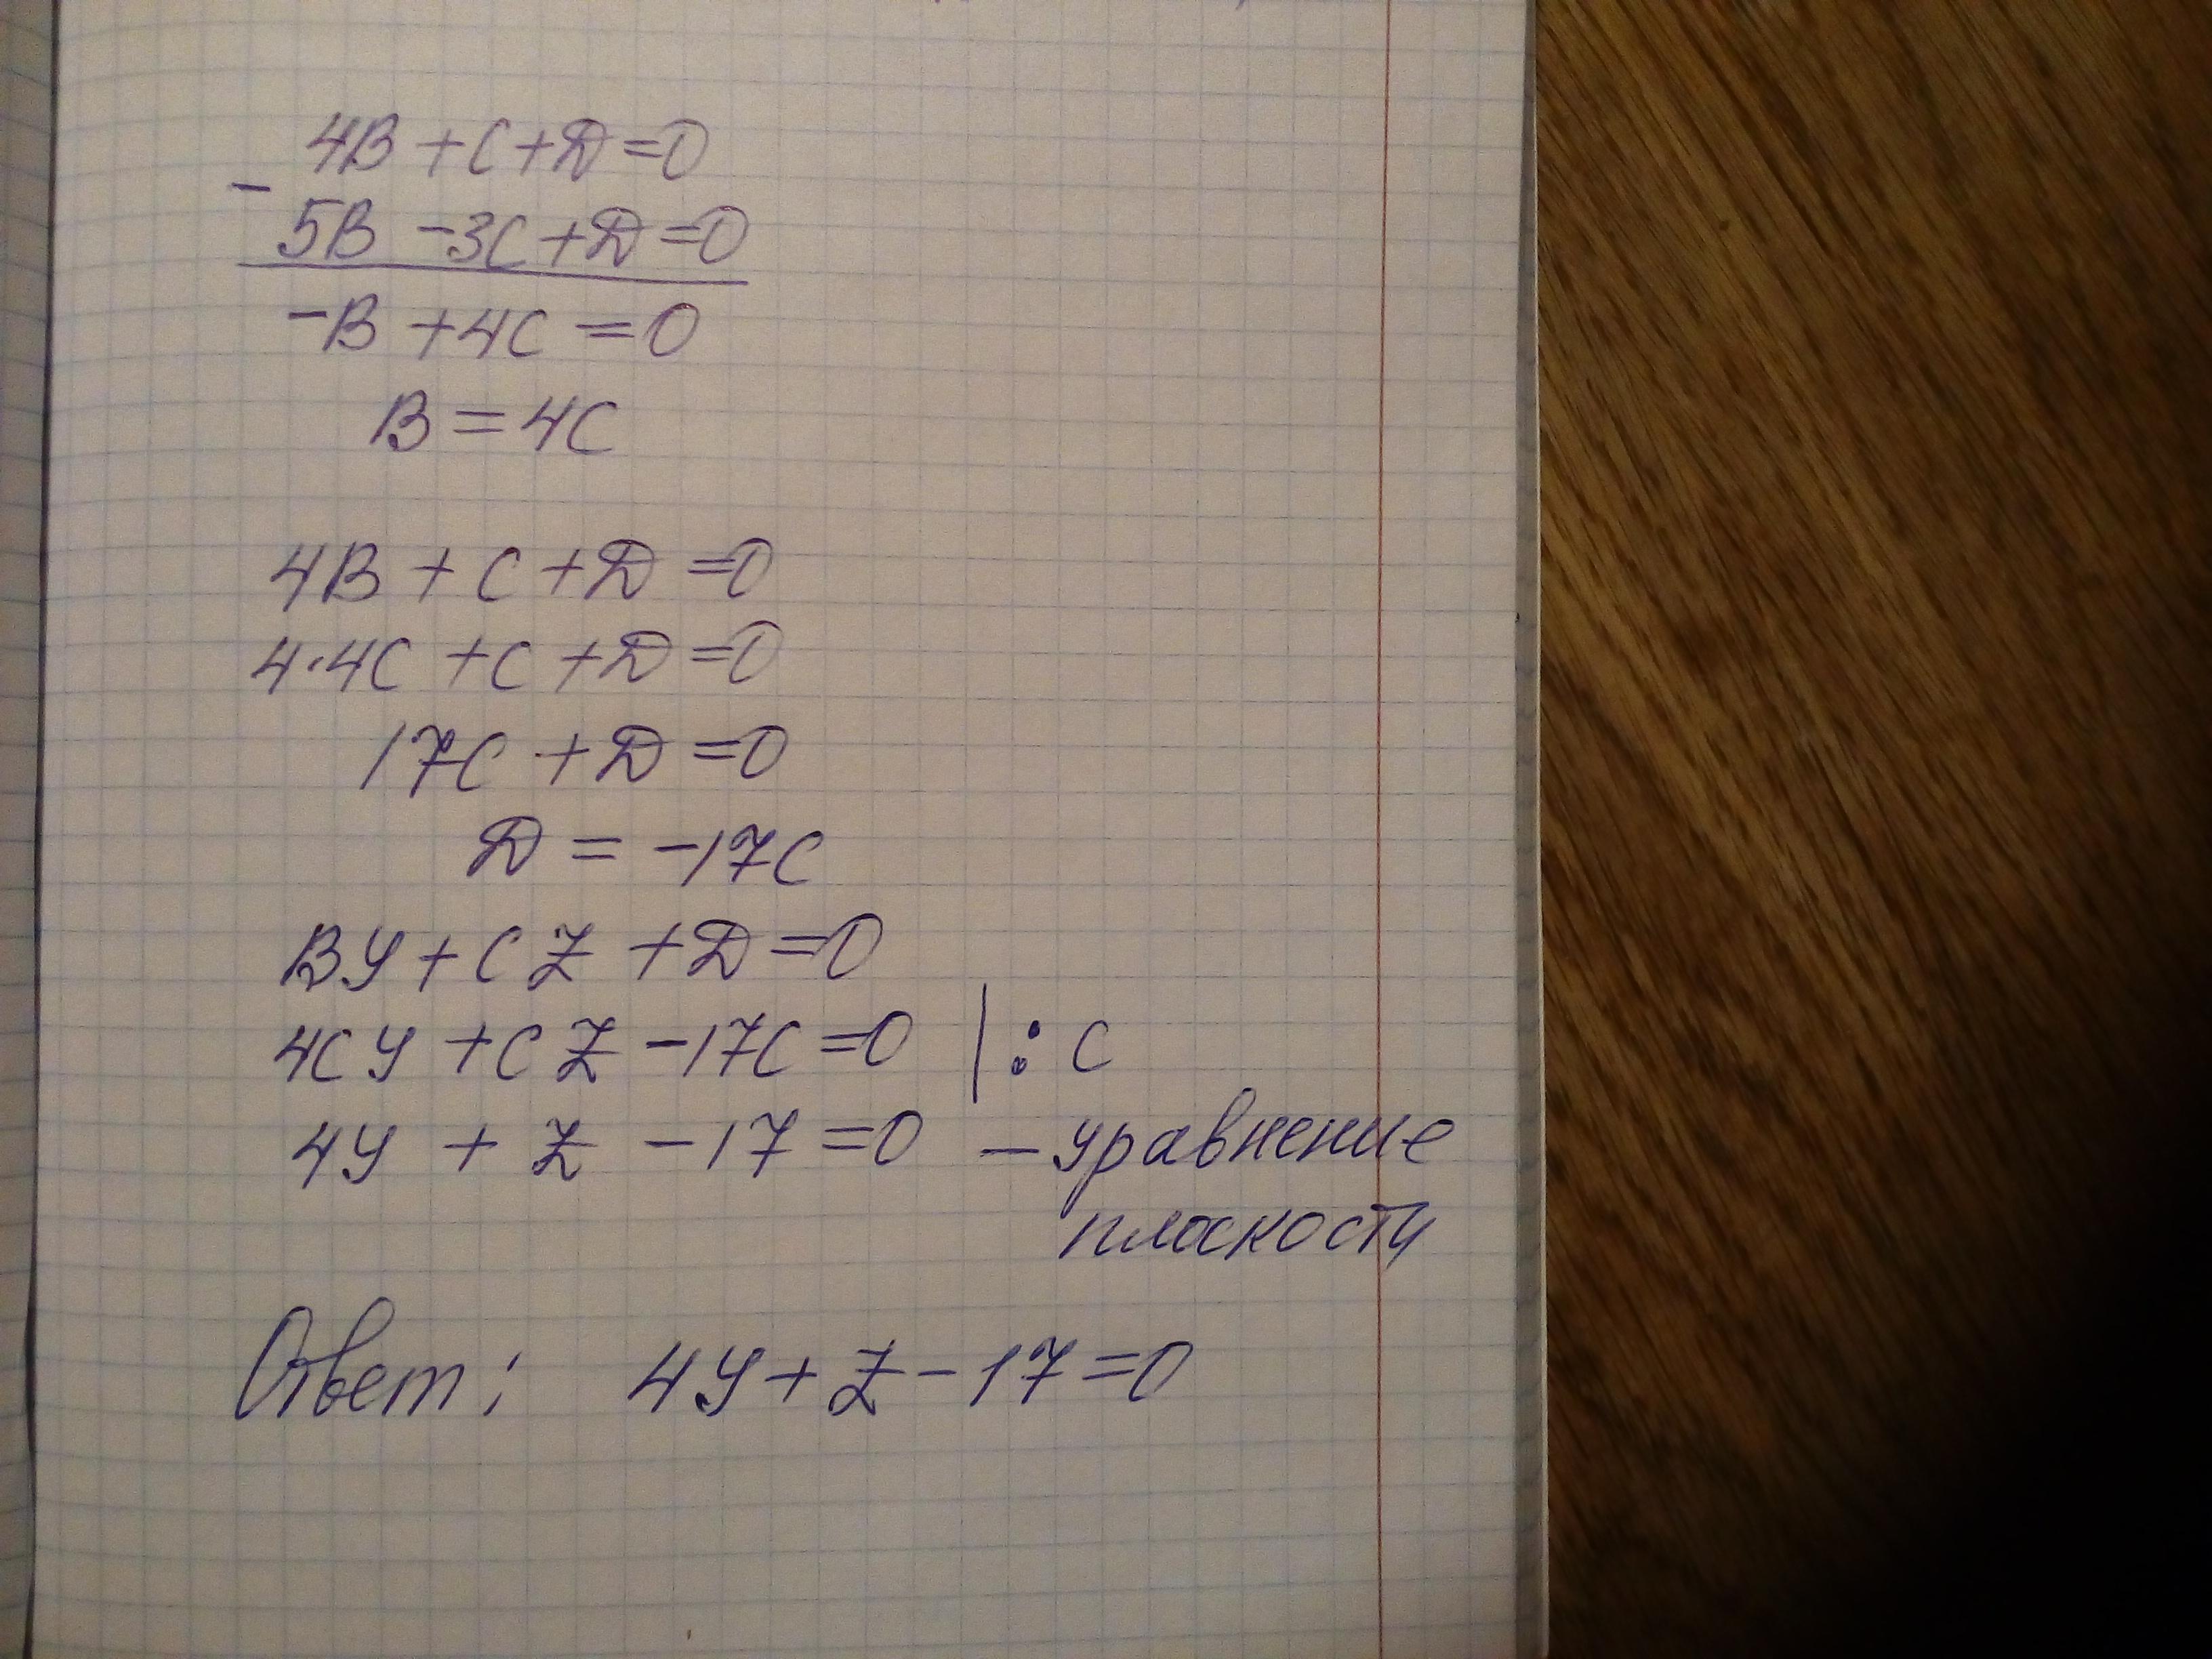 4B + C + D = 0
-
5B - 3C + D = 0
-B + 4C = 0
B = 4C
4B + C + D = 0
4·4C + C + D = 0
17C + D = 0
D = -17C
BY + CZ + D = 0
4CY + CZ - 17C = 0 | : C
4Y + Z - 17 = 0 - уравнение
плоскости
Ответ: 4Y + Z - 17 = 0